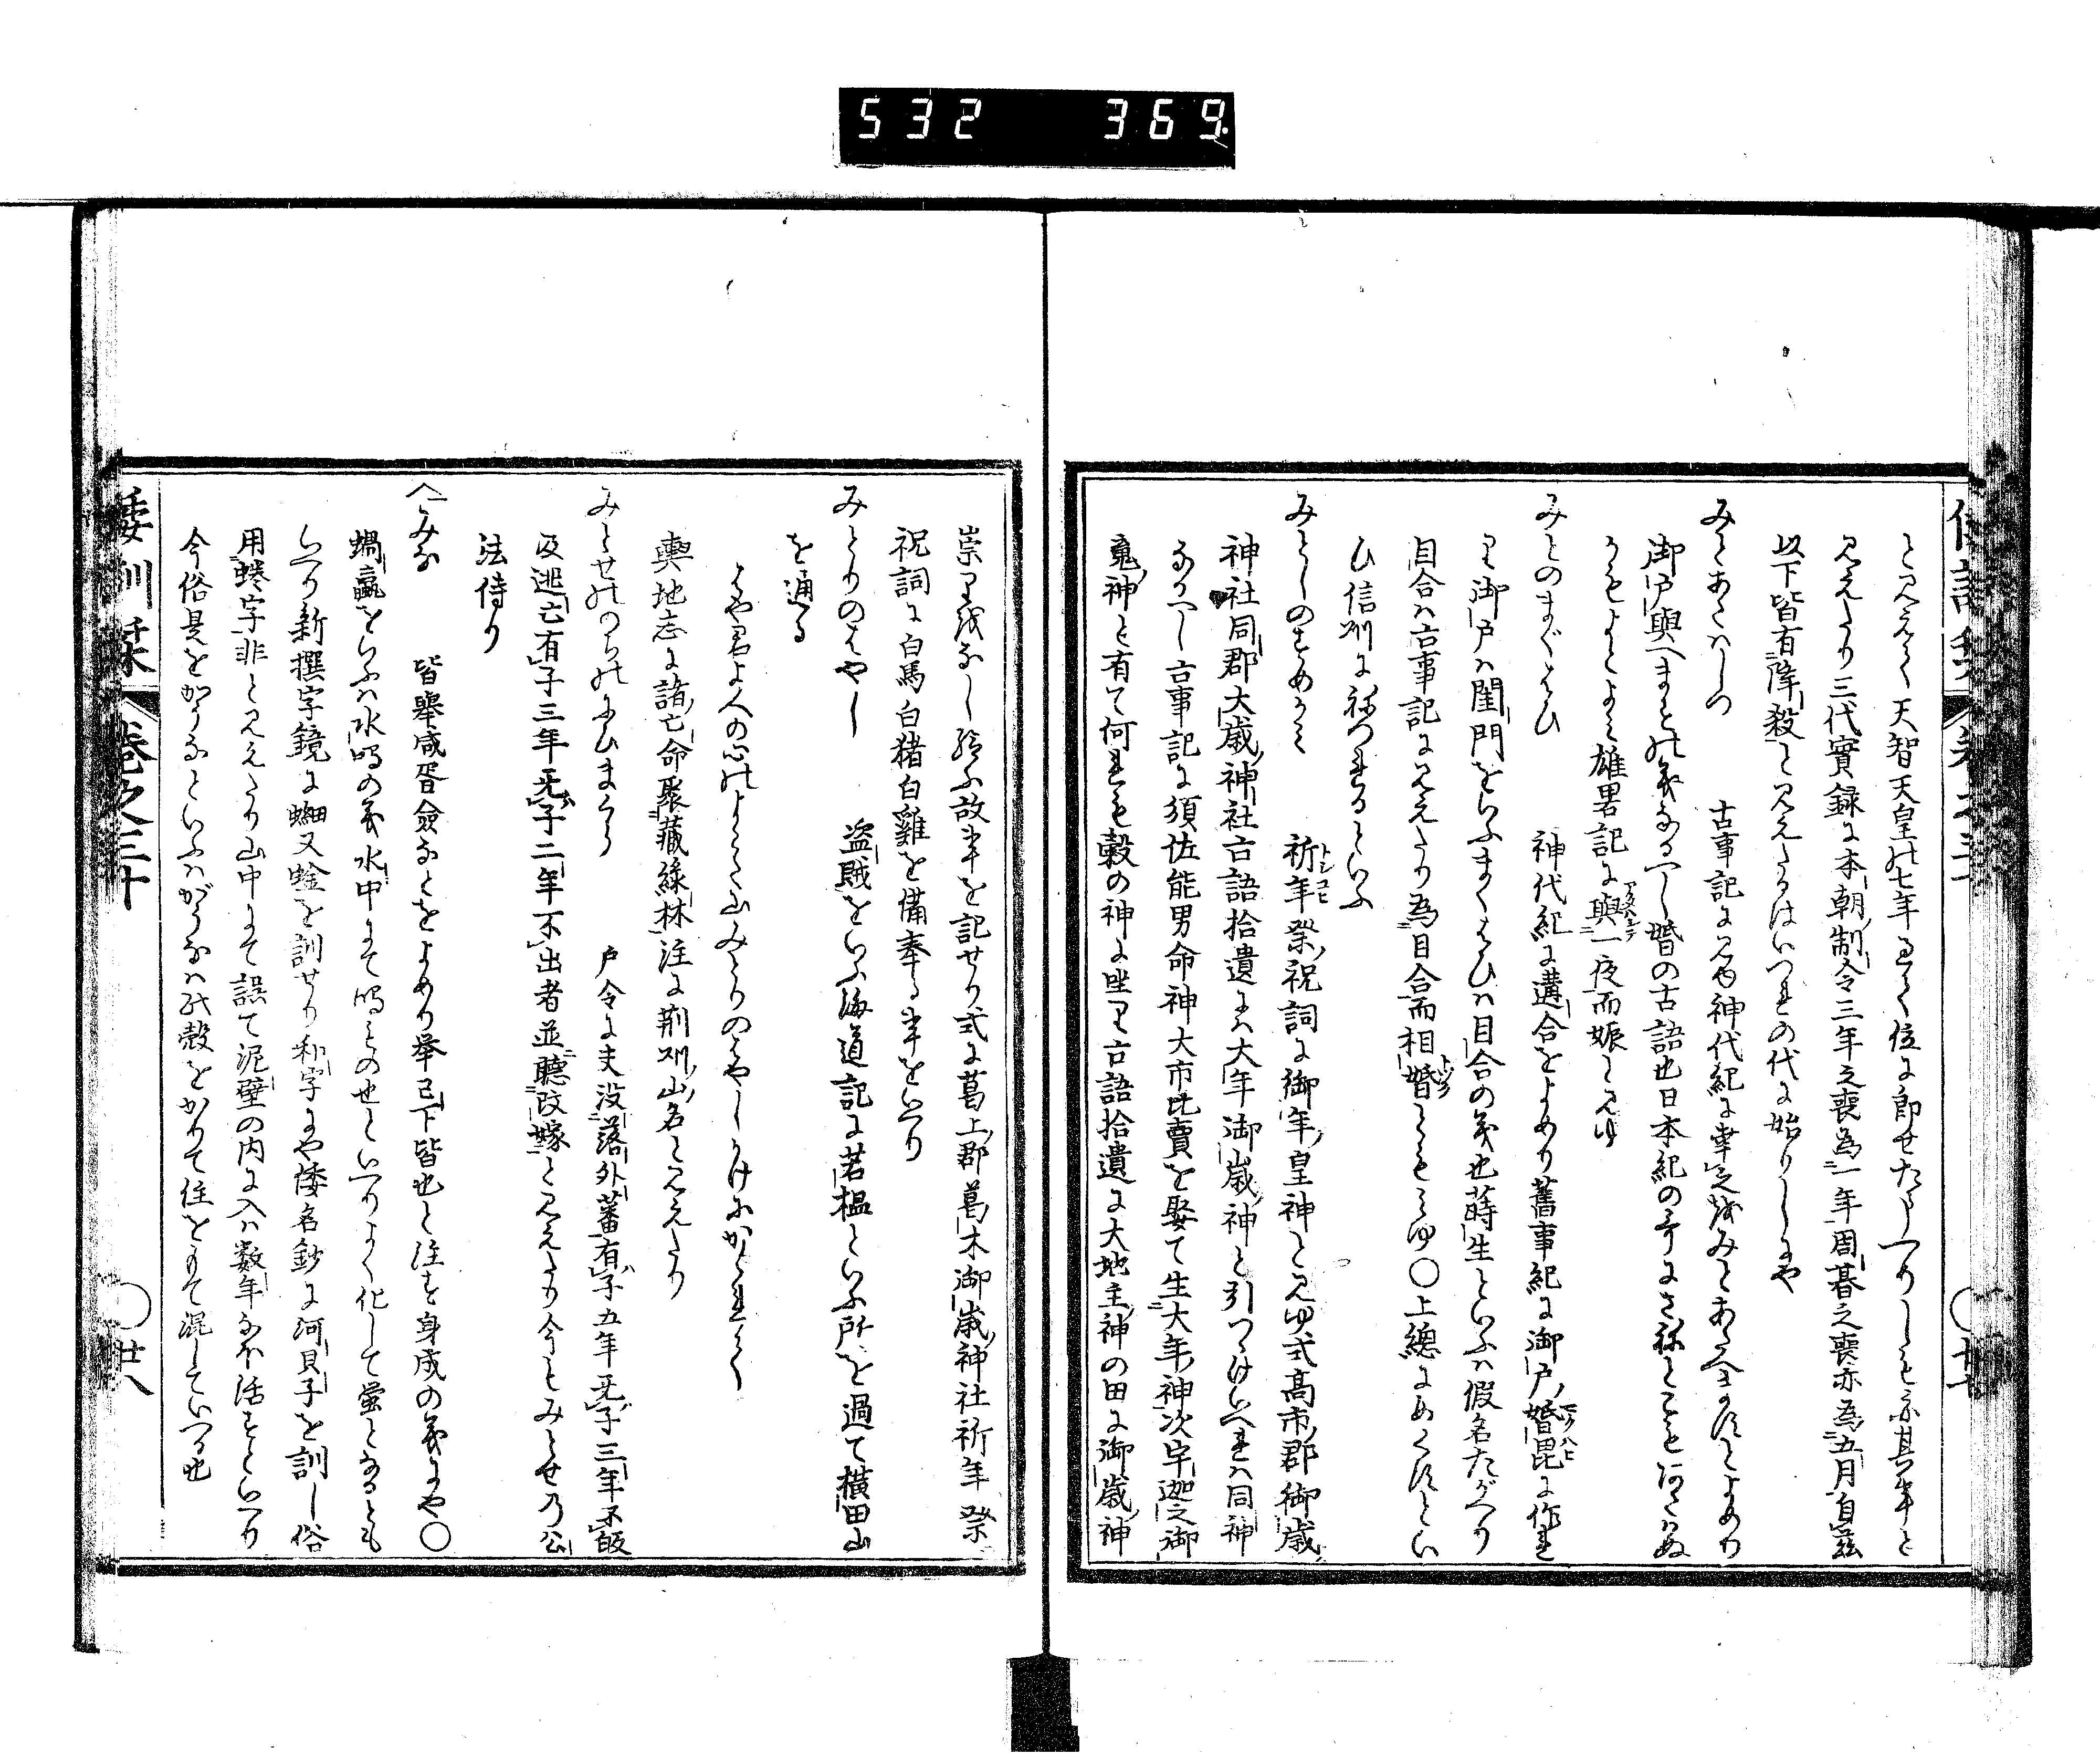 532 369
と見えて天智天皇の七年にして位に即せたまへりしも亦其事と
見えたり三代實録に本朝制令三年之喪為一年周碁之喪亦為五月自茲
以下皆有降殺と見えたるはいつれの代に始りしにや
みとあたはしの 古事記に見ゆ神代紀に幸之 みとあたはすとよめり
御戸與へますの義なるへし婚の古語也日本紀の哥に
雄畧記に與一夜而娠と見ゆ
アタハシテ
みとのまぐはひ 神代紀に遘合をよめり舊事紀に御戸婚毘に作れ
マグハヒ
り御戸は閨門をいふまくはひは目合の義也蒔生といふは假名たがへり
目合は古事記に見えたり為目合而相婚とも見ゆ○上總にめくすとい
ひ信州に といふ
みとしのまつり 祈年祭祝詞に御年皇神と見ゆ式高市郡御歳
トシコヒ
神社同郡大歳神社古語拾遺に大年御歳神と引つゝけいへれは同神
なるへし古事記に須佐能男命神大市比賣を娶て生大年神次宇迦之御
魂神と有て何れも穀の神に坐り古語拾遺に大地主神の田に御歳神
倭訓栞 巻之三十 ○廿八
祟りをなし給ふ故事を記せり式に葛上郡葛木御歳神社祈年祭
祝詞に白馬白猪白雞を備奉る事をいへり
みとりのはやし 盗賊をいふ海道記に若榲といふ所を過て横田山
を通る
はや君よ人の心のよこた山みとりのはやしかけにかくれて
輿地志に諸亡命聚藏緑林注に荊州山名と見えたり
みとせののちのにひまくら 戸令に夫没落外蕃有子五年无子三年不皈
及逃亡有子三年无子二年不出者並聽改嫁と見えたり今もみとせの公
法侍り
みな 皆舉咸胥僉なとをよめり挙已下皆也と注を身成の義にや○
蝸蠃をいふは水鳴の義水中にて鳴もの也といへりよく化して螢となるとも
いへり新撰字鏡に蜷又蛿を訓せり和字にや倭名鈔に河貝子を訓し俗
用蜷字非と見えたり山中にて誤て泥壁の内に入は数年なほ活をといへり
今俗是をがうなといふはがうなは殻をかりて住をもて混していへる也